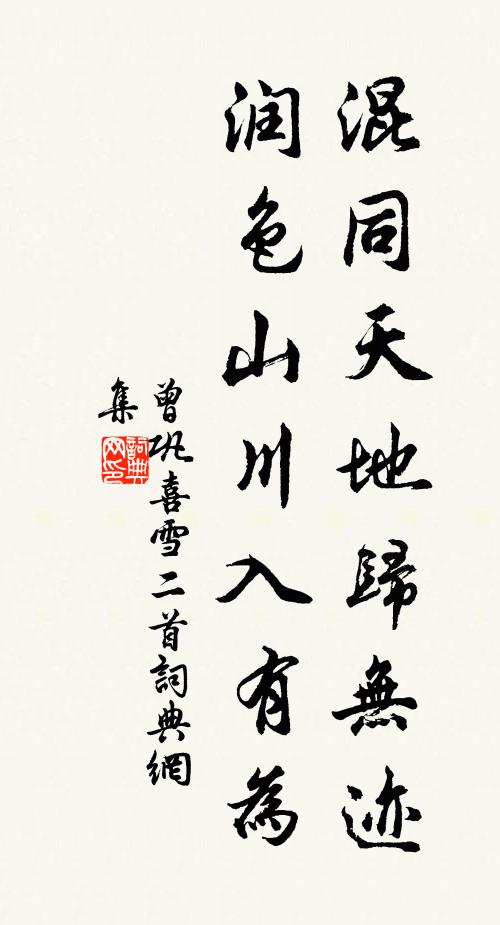 混同天地歸無迹
润色山川入有為
曾巩喜雪二首詞典網
集
詞典网印